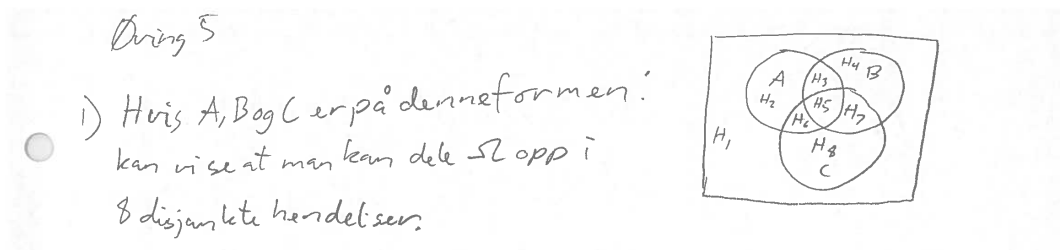 Øving 5
1) Hvis A, B og C er på denne formen:
kan vi se at man kan dele Ω opp i
8 disjunkte hendelser.
A
B
C
H₁
H₂
H₃
H₄
H₅
H₆
H₇
H₈